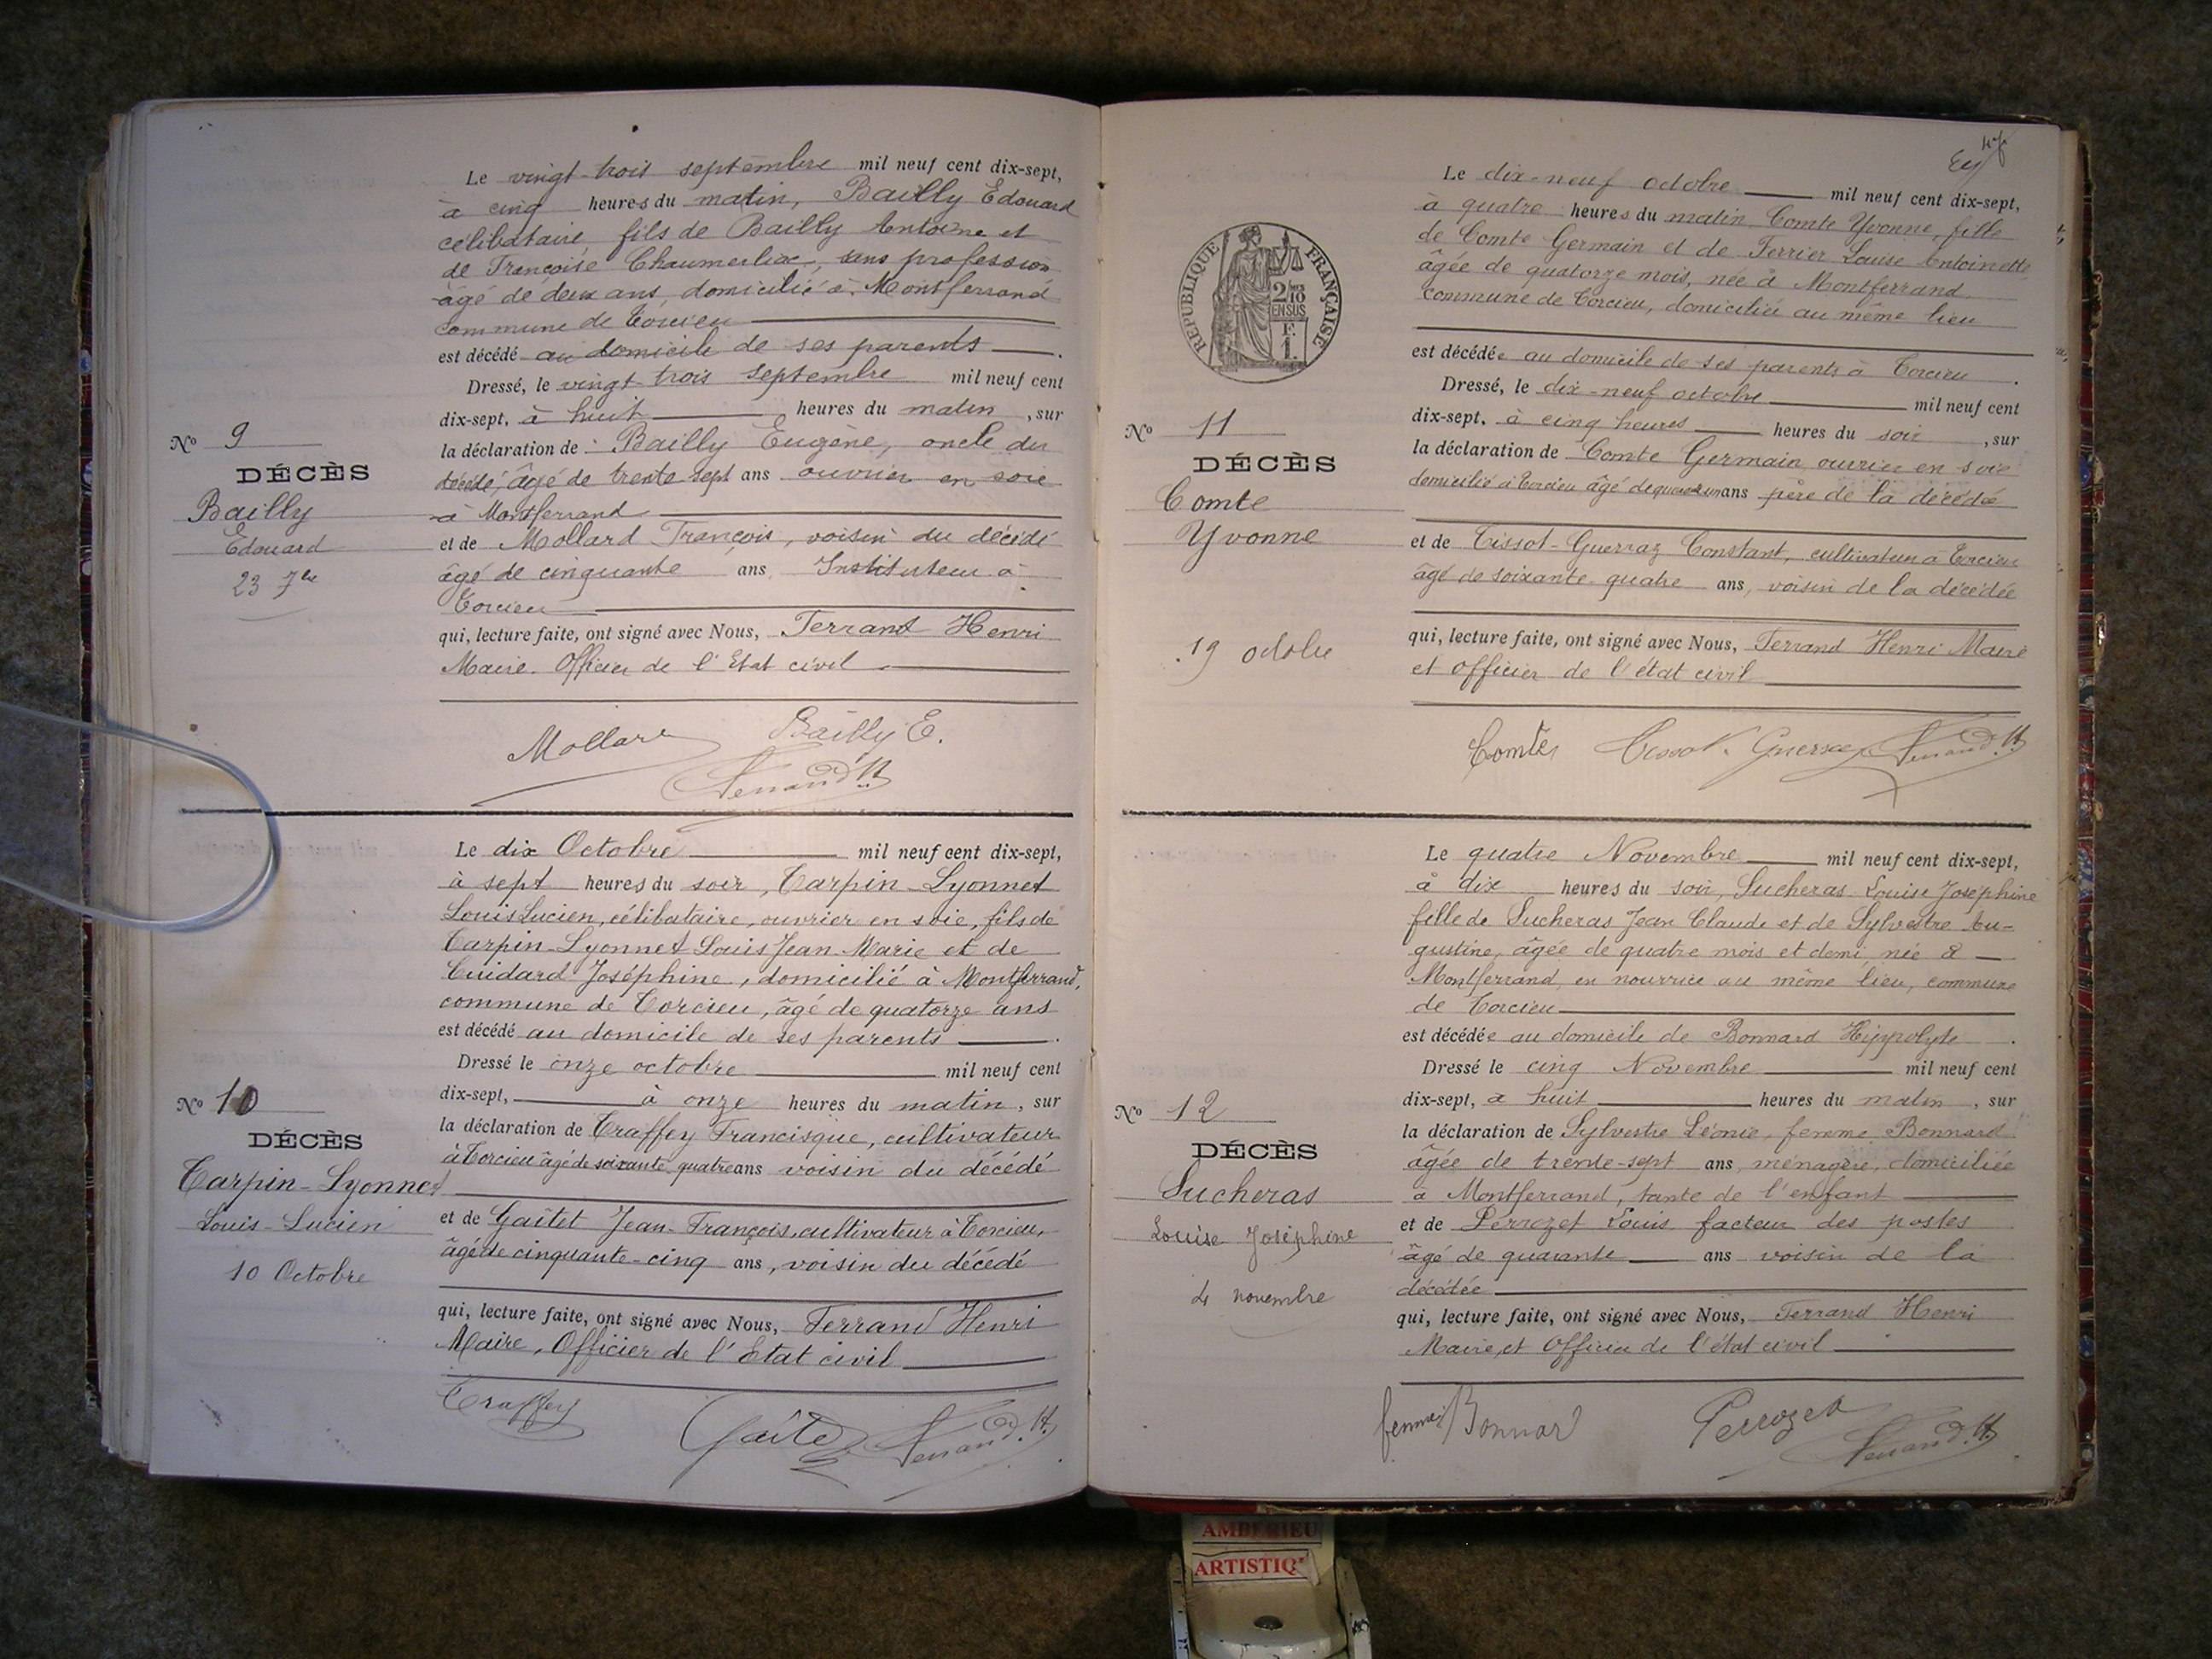 Le vingt-trois septembre mil neuf cent dix-sept,
à cinq heures du matin, Bailly Edouard
célibataire, fils de Bailly Antoine et
de Françoise Chaumerliac, sans profession
âgé de deux ans, domicilié à Montferrand
commune de Torcieu
est décédé au domicile de ses parents.
Dressé, le vingt-trois septembre mil neuf cent
dix-sept, à huit heures du matin, sur
la déclaration de Bailly Eugène, oncle du
décédé, âgé de trente-sept ans ouvrier en soie
à Montferrand
et de Mollard François, voisin du décédé
âgé de cinquante ans, Instituteur à
Torcieu
qui, lecture faite, ont signé avec Nous, Ferrand Henri
Maire. Officier de l'Etat civil
Nº 9
DÉCÈS
Bailly
Edouard
23 7bre
Mollard Bailly E.
Ferrand H.
Le dix Octobre mil neuf cent dix-sept,
à sept heures du soir, Tarpin-Lyonnet
Louis Lucien, célibataire, ouvrier en soie, fils de
Tarpin-Lyonnet Louis Jean-Marie et de
Cuidard Joséphine, domicilié à Montferrand,
commune de Torcieu, âgé de quatorze ans
est décédé au domicile de ses parents.
Dressé le onze octobre mil neuf cent
dix-sept, à onze heures du matin, sur
la déclaration de Traffey Francisque, cultivateur
à Torcieu âgé de soixante-quatre ans voisin du décédé
et de Gaîtet Jean-François, cultivateur à Torcieu,
âgé de cinquante-cinq ans, voisin du décédé
qui, lecture faite, ont signé avec Nous, Ferrand Henri
Maire, Officier de l'Etat civil
Nº 10
DÉCÈS
Tarpin-Lyonnet
Louis-Lucien
10 Octobre
Traffey Gaîtet Ferrand. H.
Le dix-neuf octobre mil neuf cent dix-sept,
à quatre heures du matin Comte Yvonne, fille
de Comte Germain et de Ferrier Louise Antoinette
âgée de quatorze mois, née à Montferrand
commune de Torcieu, domiciliée au même lieu
est décédée au domicile de ses parents à Torcieu.
Dressé, le dix-neuf octobre mil neuf cent
dix-sept, à cinq heures heures du soir, sur
la déclaration de Comte Germain ouvrier en soie
domicilié à Torcieu âgé de ans père de la décédée
et de Tissot-Guerraz Constant, cultivateur à Torcieu
âgé de soixante-quatre ans, voisin de la décédée
qui, lecture faite, ont signé avec Nous, Ferrand Henri Maire
et officier de l'état civil
RÉPUBLIQUE FRANÇAISE
2/10
EN SUS
F.
1.
Nº 11
DÉCÈS
Comte
Yvonne
19 octobre
Comte Tissot-Guerraz Ferrand. H
Le quatre Novembre mil neuf cent dix-sept,
à dix heures du soir, Sucheras Louise Joséphine
fille de Sucheras Jean Claude et de Sylvestre Au-
gustine, âgée de quatre mois et demi, née à
Montferrand, en nourrice au même lieu, commune
de Torcieu
est décédée au domicile de Bonnard Hippolyte.
Dressé le cinq Novembre mil neuf cent
dix-sept, à huit heures du matin, sur
la déclaration de Sylvestre Léonie, femme Bonnard
âgée de trente-sept ans, ménagère, domiciliée
à Montferrand, tante de l'enfant
et de Perrozet Louis facteur des postes
âgé de quarante ans voisin de la
décédée
qui, lecture faite, ont signé avec Nous, Ferrand Henri
Maire, et Officier de l'état civil
Nº 12
DÉCÈS
Sucheras
Louise Joséphine
4 novembre
femme Bonnard Perrozet
Ferrand. H.
AMBERIEU
ARTISTIQ